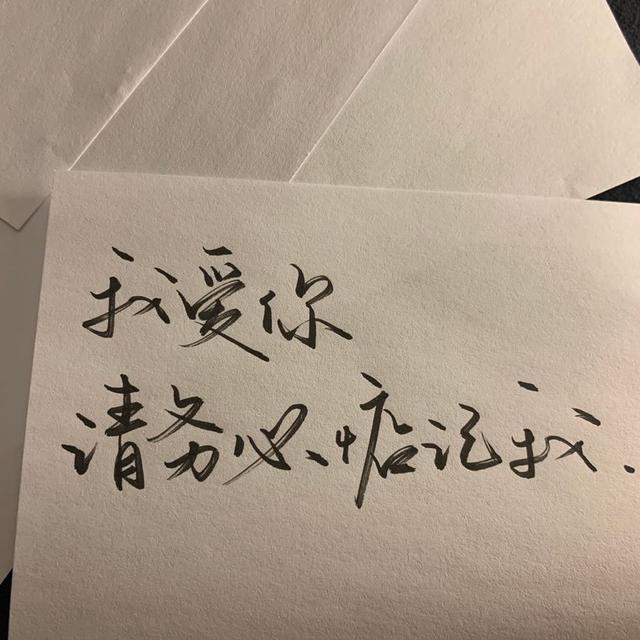 我爱你
请务必惦记我.